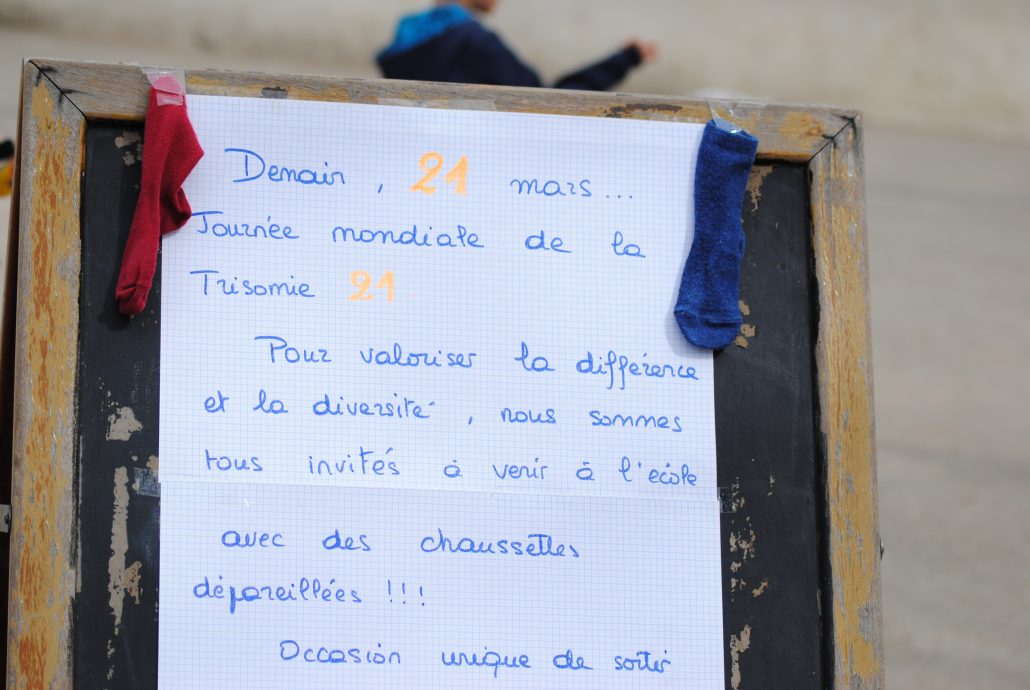 Demain, 21 mars...
Journée mondiale de la
Trisomie 21
Pour valoriser la différence
et la diversité, nous sommes
tous invités à venir à l'ecole
avec des chaussettes
dépareillées !!!
Occasion unique de sortir